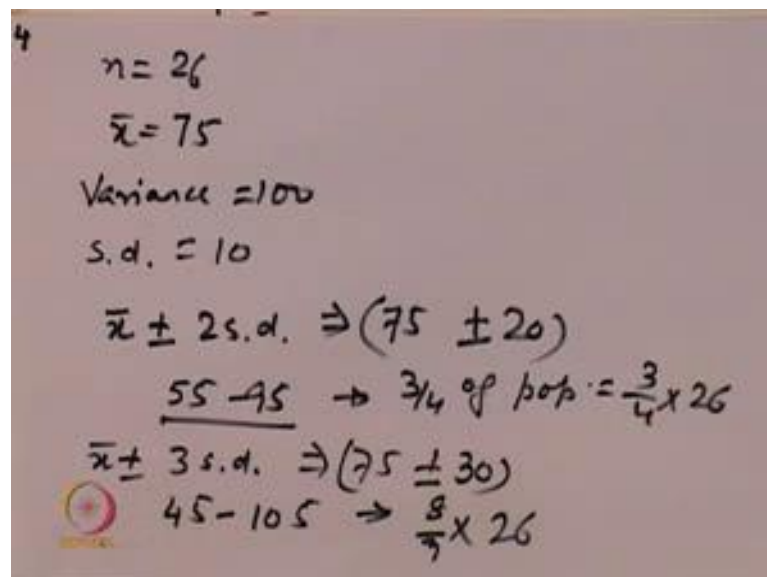 4
n = 26
x̄ = 75
Variance = 100
s.d. = 10
x̄ ± 2 s.d. ⇒ (75 ± 20)
55 - 95 → 3/4 of pop. = 3/4 × 26
x̄ ± 3 s.d. ⇒ (75 ± 30)
45 - 105 → 8/9 × 26